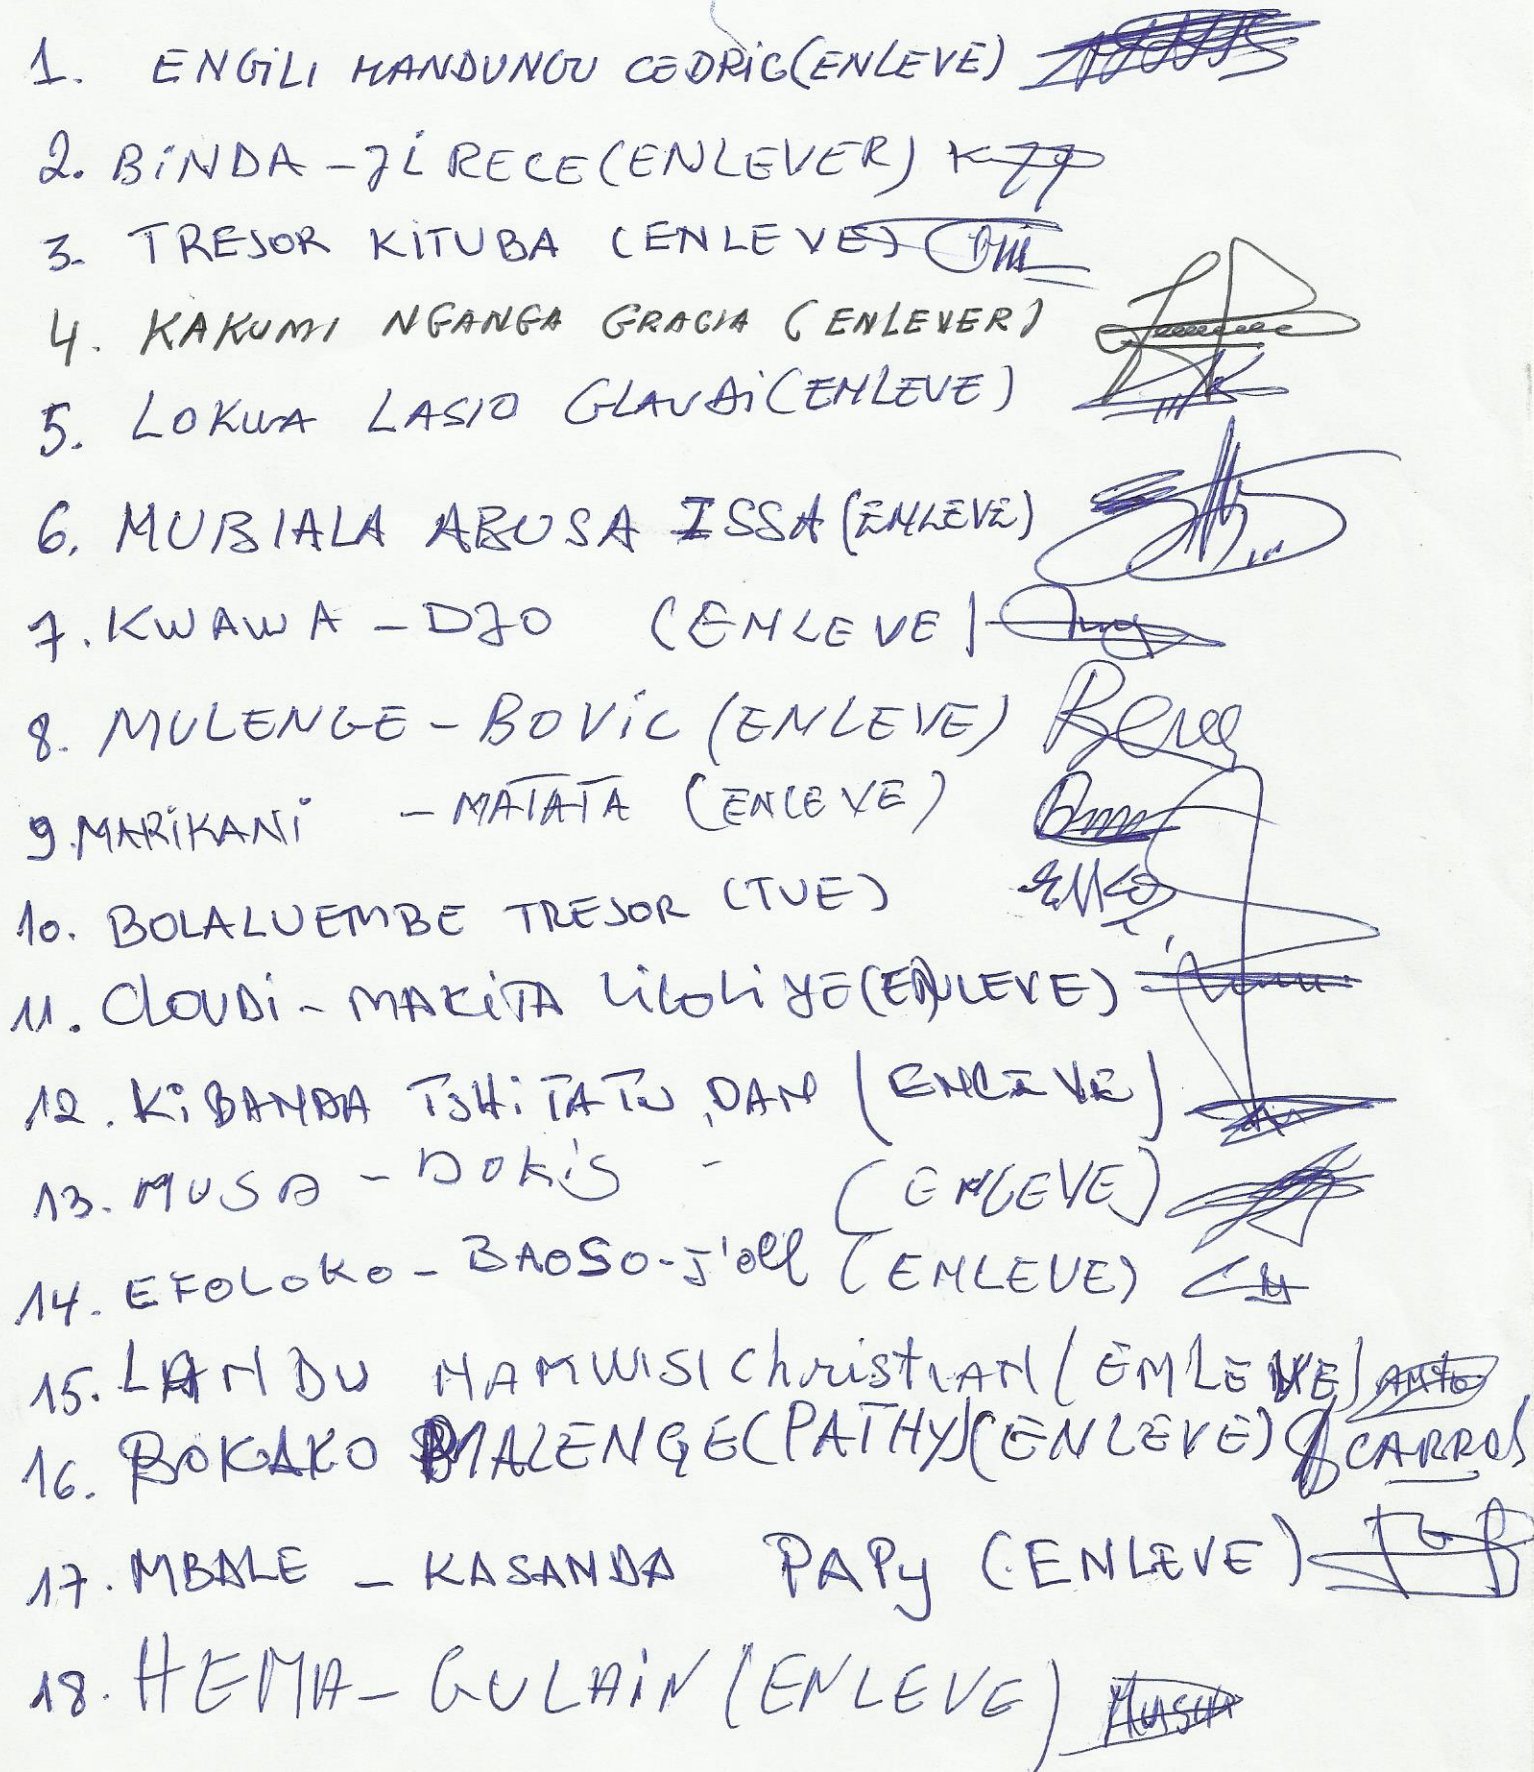 1. ENGILI MANDUNGU CEDRIC (ENLEVE)
2. BINDA - JI RECE (ENLEVER)
3. TRESOR KITUBA (ENLEVE)
4. KAKUMI NGANGA GRACIA (ENLEVER)
5. LOKWA LASIO GLAUDI (ENLEVE)
6. MUBIALA ABUSA ISSA (ENLEVE)
7. KWAWA - DJO (ENLEVE)
8. MULENGE - BOVIC (ENLEVE)
9. MARIKANI - MATATA (ENLEVE)
10. BOLALUEMBE TRESOR (TUE)
11. CLOUDI - MAKITA LILOLIYE (ENLEVE)
12. KIBANDA TSHITATU, DAN (ENLEVE)
13. MUSA - DOKIS - (ENLEVE)
14. EFOLOKO - BAOSO - J'OEL (ENLEVE)
15. LANDU MAMWISI Christian (ENLEVE)
16. BOKAKO MALENGE (PATHY) (ENLEVE) CARROS
17. MBALE - KASANDA PAPY (ENLEVE)
18. HEMA - GULAIN (ENLEVE)